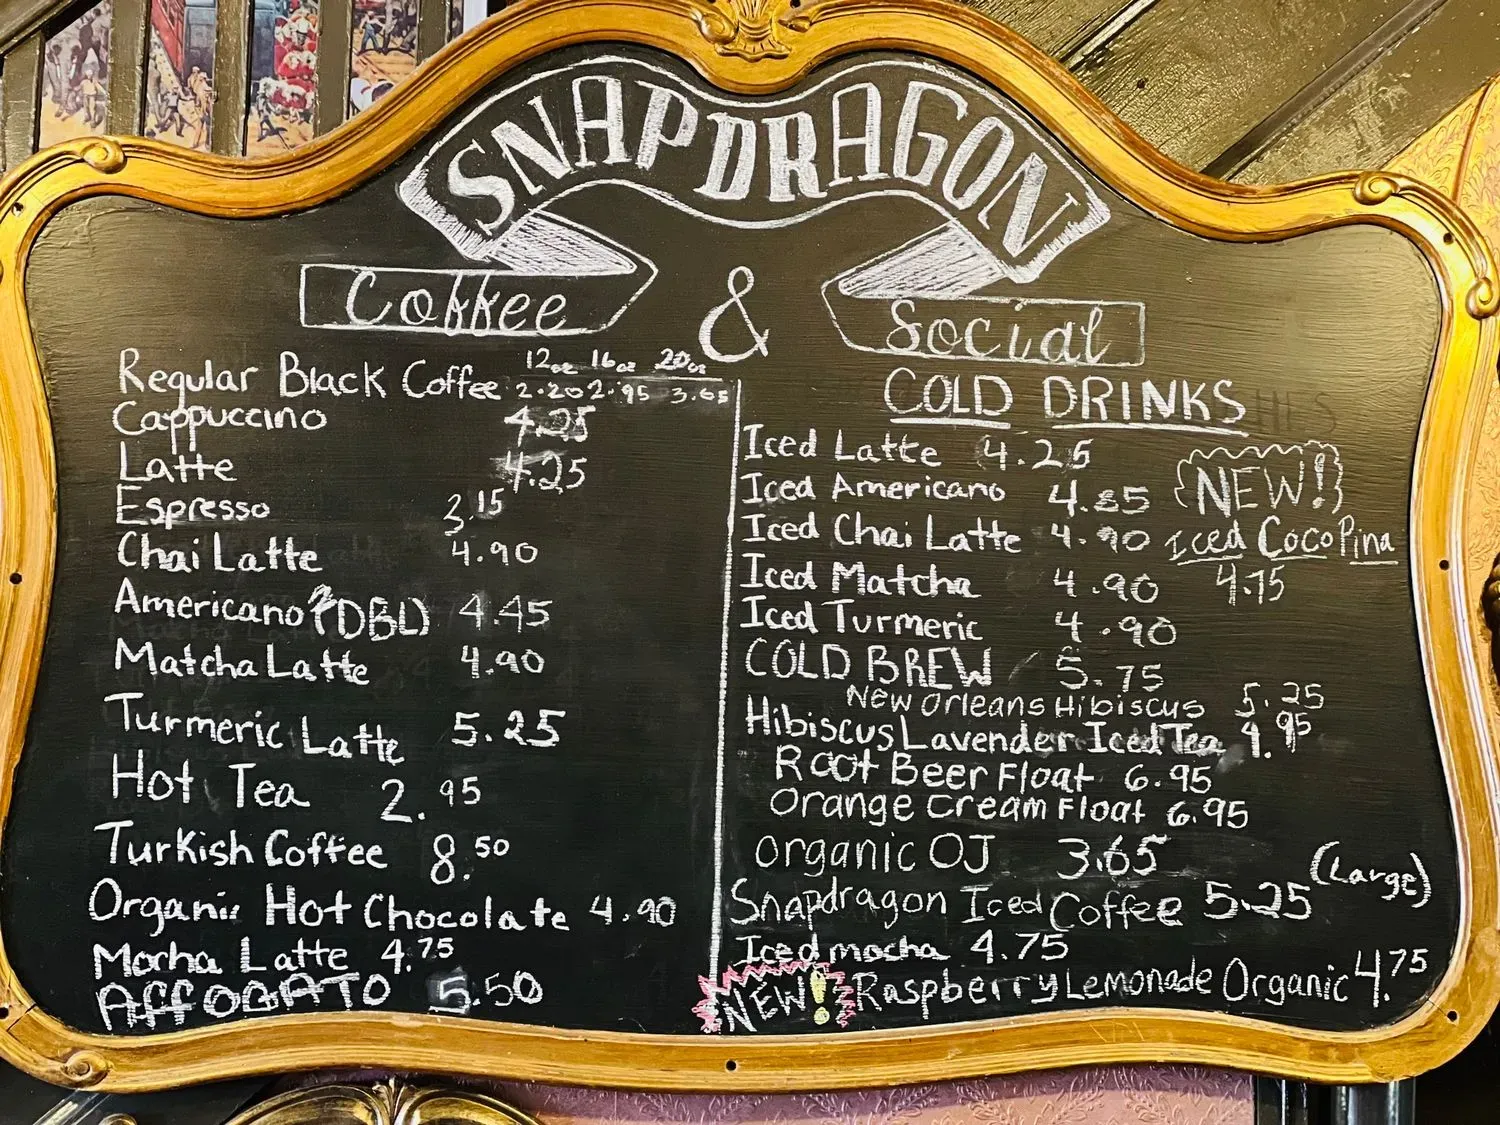 SNAPDRAGON
Coffee & Social
12oz 16oz 20oz
Regular Black Coffee 2.20 2.95 3.65
Cappuccino 4.25
Latte 4.25
Espresso 3.15
Chai Latte 4.90
Americano (DBL) 4.45
Matcha Latte 4.90
Turmeric Latte 5.25
Hot Tea 2.95
Turkish Coffee 8.50
Organic Hot Chocolate 4.90
Mocha Latte 4.75
AFFOGATO 5.50
COLD DRINKS
Iced Latte 4.25
Iced Americano 4.85
Iced Chai Latte 4.90
Iced Matcha 4.90
Iced Turmeric 4.90
COLD BREW 5.75
New Orleans Hibiscus 5.25
Hibiscus Lavender Iced Tea 4.95
Root Beer Float 6.95
Orange Cream Float 6.95
Organic OJ 3.65
Snapdragon Iced Coffee 5.25 (Large)
Iced mocha 4.75
NEW! Raspberry Lemonade Organic 4.75
NEW!
Iced Coco Pina
4.75